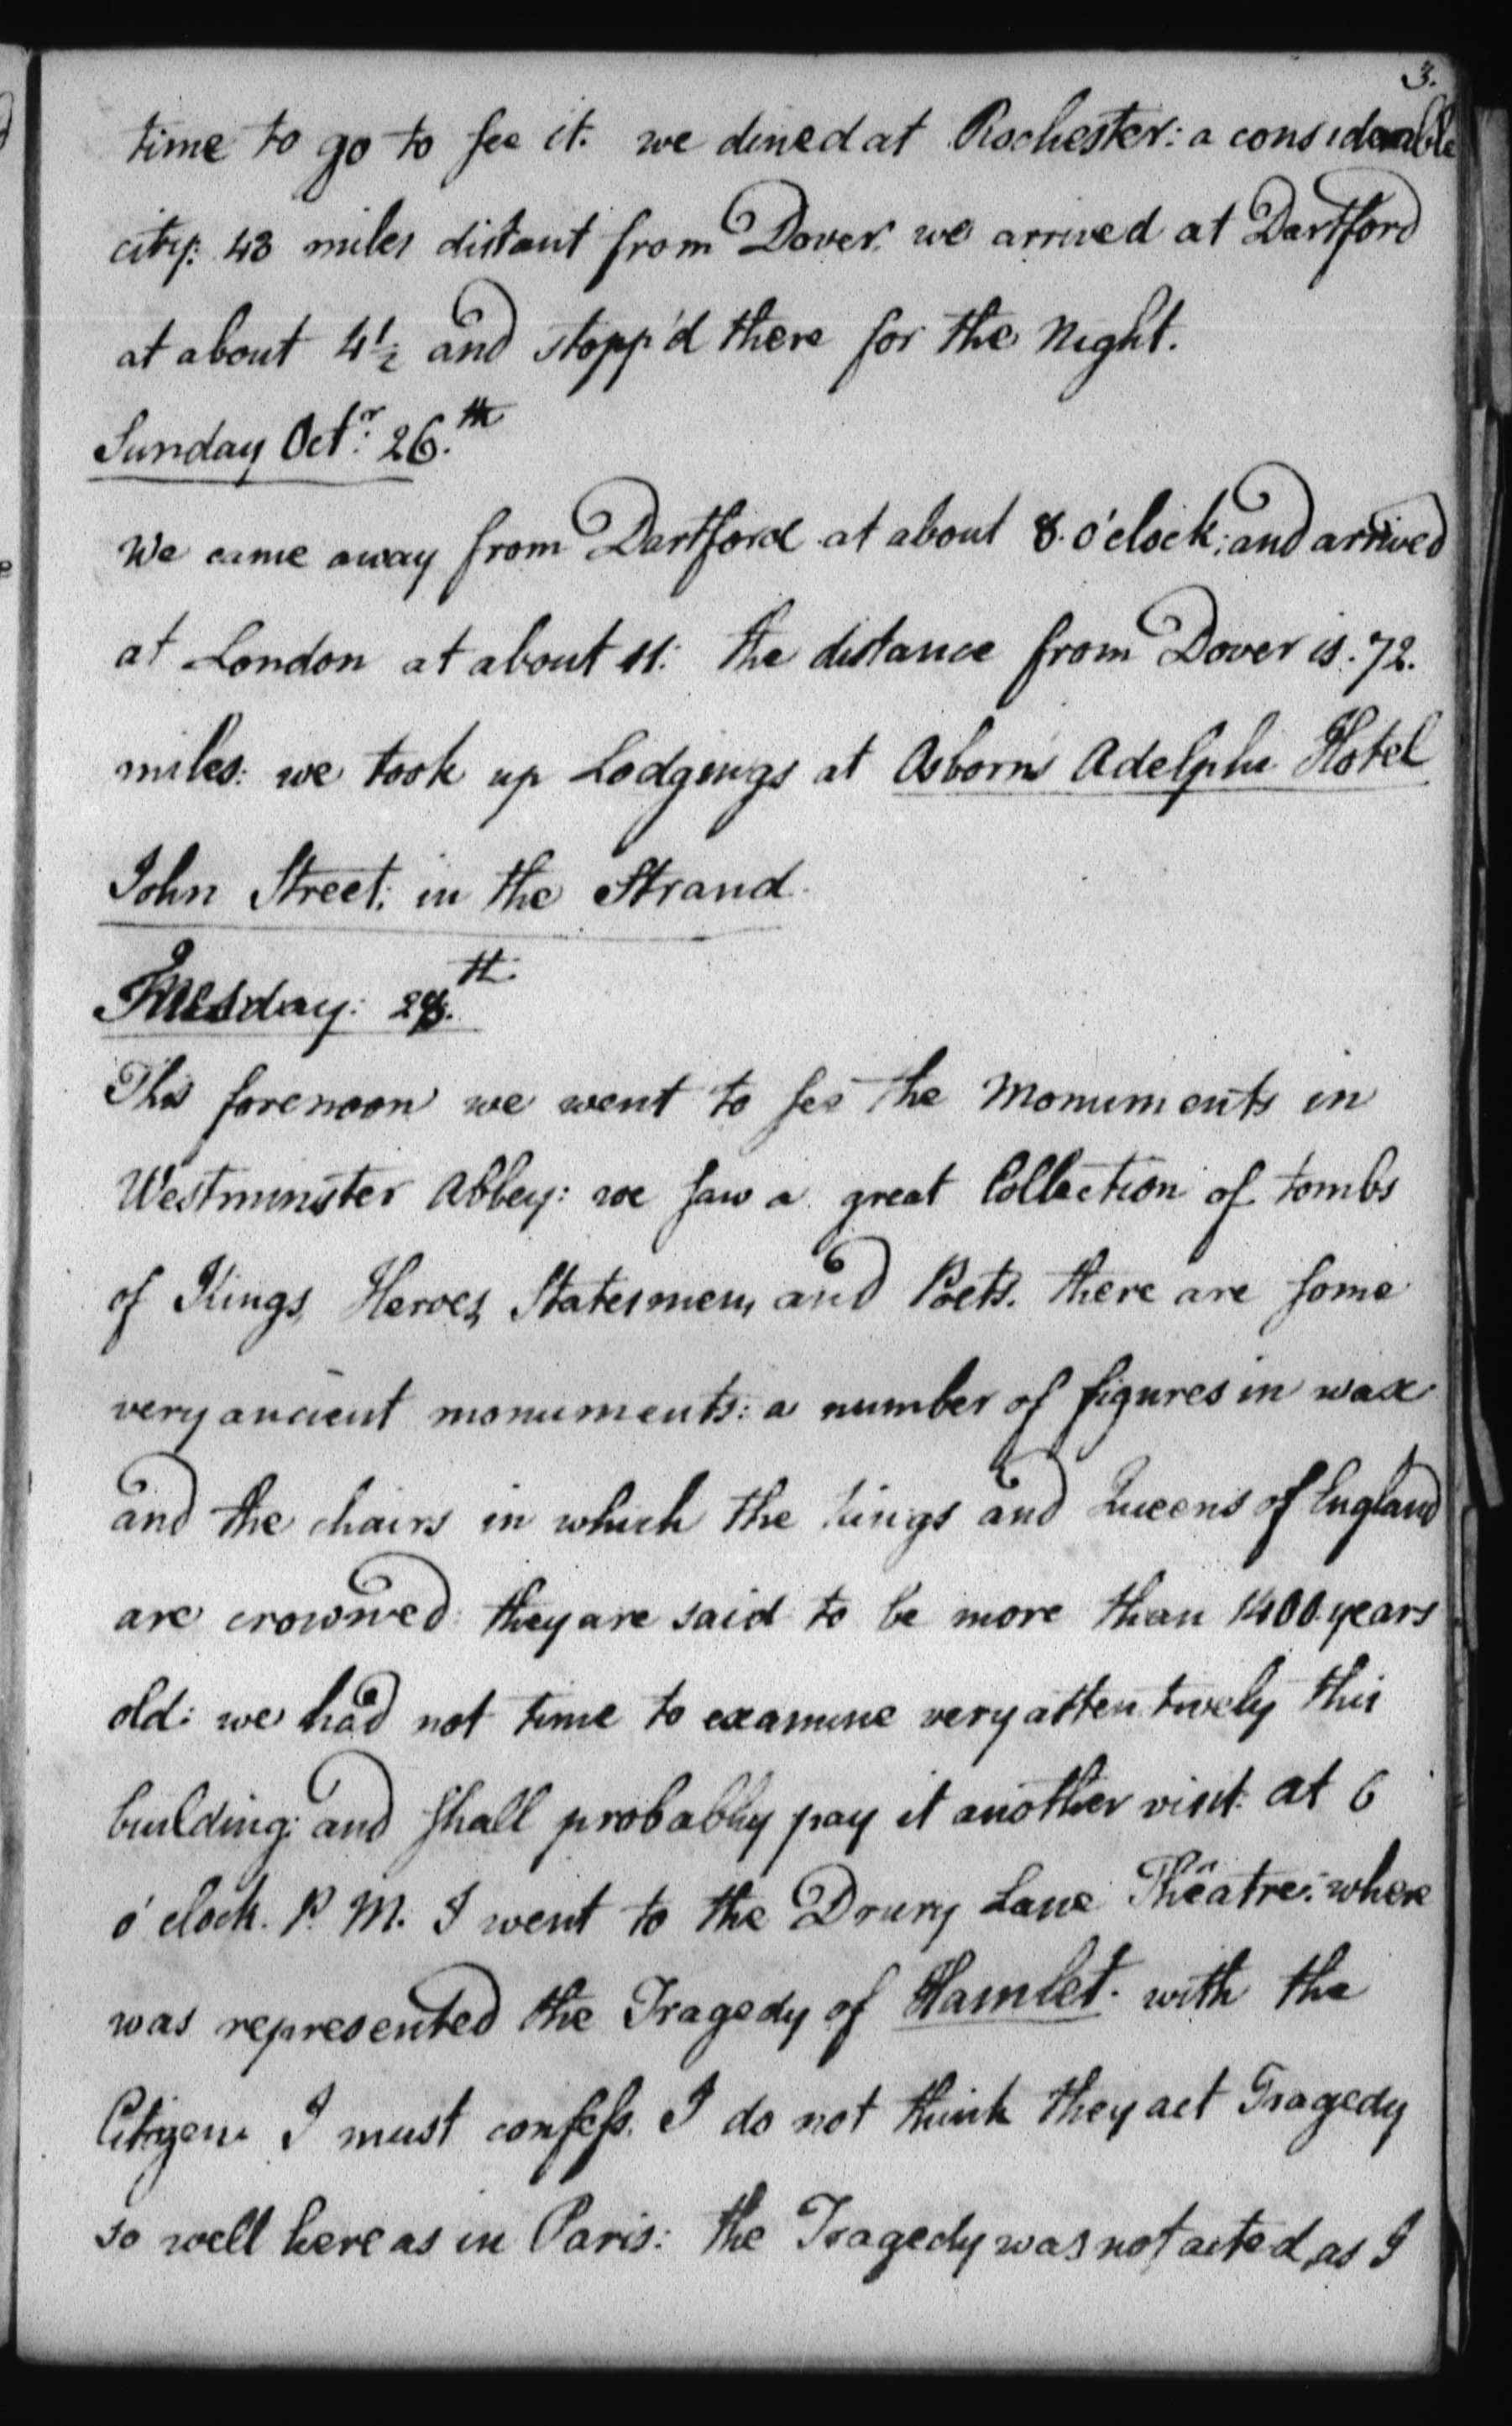 3.
time to go to see it. we dined at Rochester: a considerable
city: 43 miles distant from Dover. we arrived at Dartford
at about 4½ and stopp'd there for the Night.
Sunday Octr. 26.th
We came away from Dartford at about 8. o'clock; and arrived
at London at about 11: the distance from Dover is. 72.
miles: we took up Lodgings at Osborn's Adelphi Hotel
John Street: in the Strand.
Tuesday: 28.th
This forenoon we went to see the Monuments in
Westminster Abbey: we saw a great Collection of tombs
of Kings, Heroes, Statesmen, and Poets. there are some
very ancient monuments: a number of figures in wax
and the chairs in which the kings and Queens of England
are crowned: they are said to be more than 1400 years
old: we had not time to examine very attentively this
building: and shall probably pay it another visit: at 6
o'clock. P. M. I went to the Drury Lane Théâtre: where
was represented the Tragedy of Hamlet. with the
Citizen. I must confess. I do not think they act Tragedy
so well here as in Paris: the Tragedy was not acted, as I